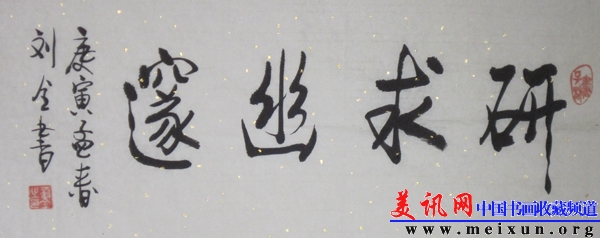 研求幽邃
庚寅孟春
刘 书
美讯网 中国书画收藏频道
www.meixun.org